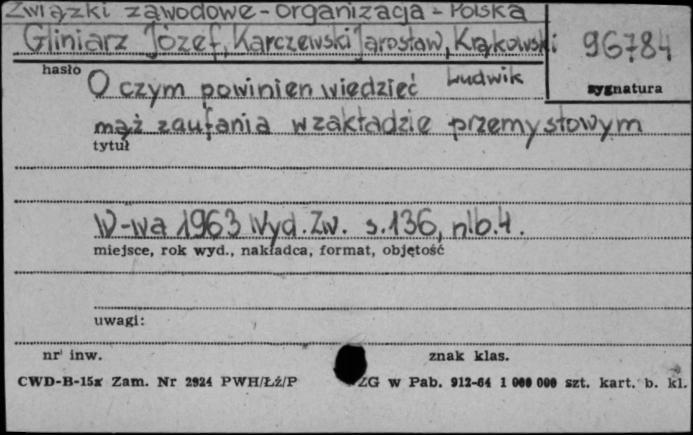 Związki zawodowe - organizacja - Polska
Gliniarz Józef, Karczewski Jarosław, Krąkowski
96784
hasło
Ludwik
sygnatura
O czym powinien wiedzieć
mąż zaufania w zakładzie przemysłowym
tytuł
W-wa 1963 Wyd. Zw. s. 136, nlb. 4.
miejsce, rok wyd., nakładca, format, objętość
uwagi:
nr inw.
znak klas.
CWD-B-15x Zam. Nr 2924 PWH/Łź/P
ZG w Pab. 912-64 1 000 000 szt. kart. b. kl.